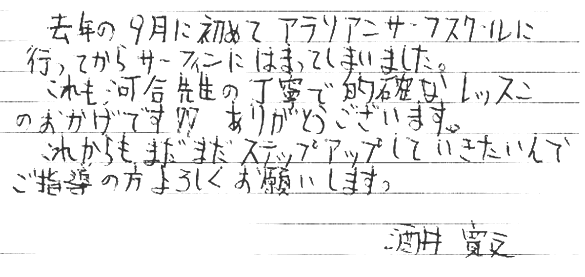 去年の9月に初めてアラリアンサーフスクールに
行ってからサーフィンにはまってしまいました。
これも、河合先生の丁寧で的確なレッスン
のおかげです!!! ありがとうございます。
これからもまだまだステップアップしていきたいんで
ご指導の方よろしくお願いします。
酒井 寛文